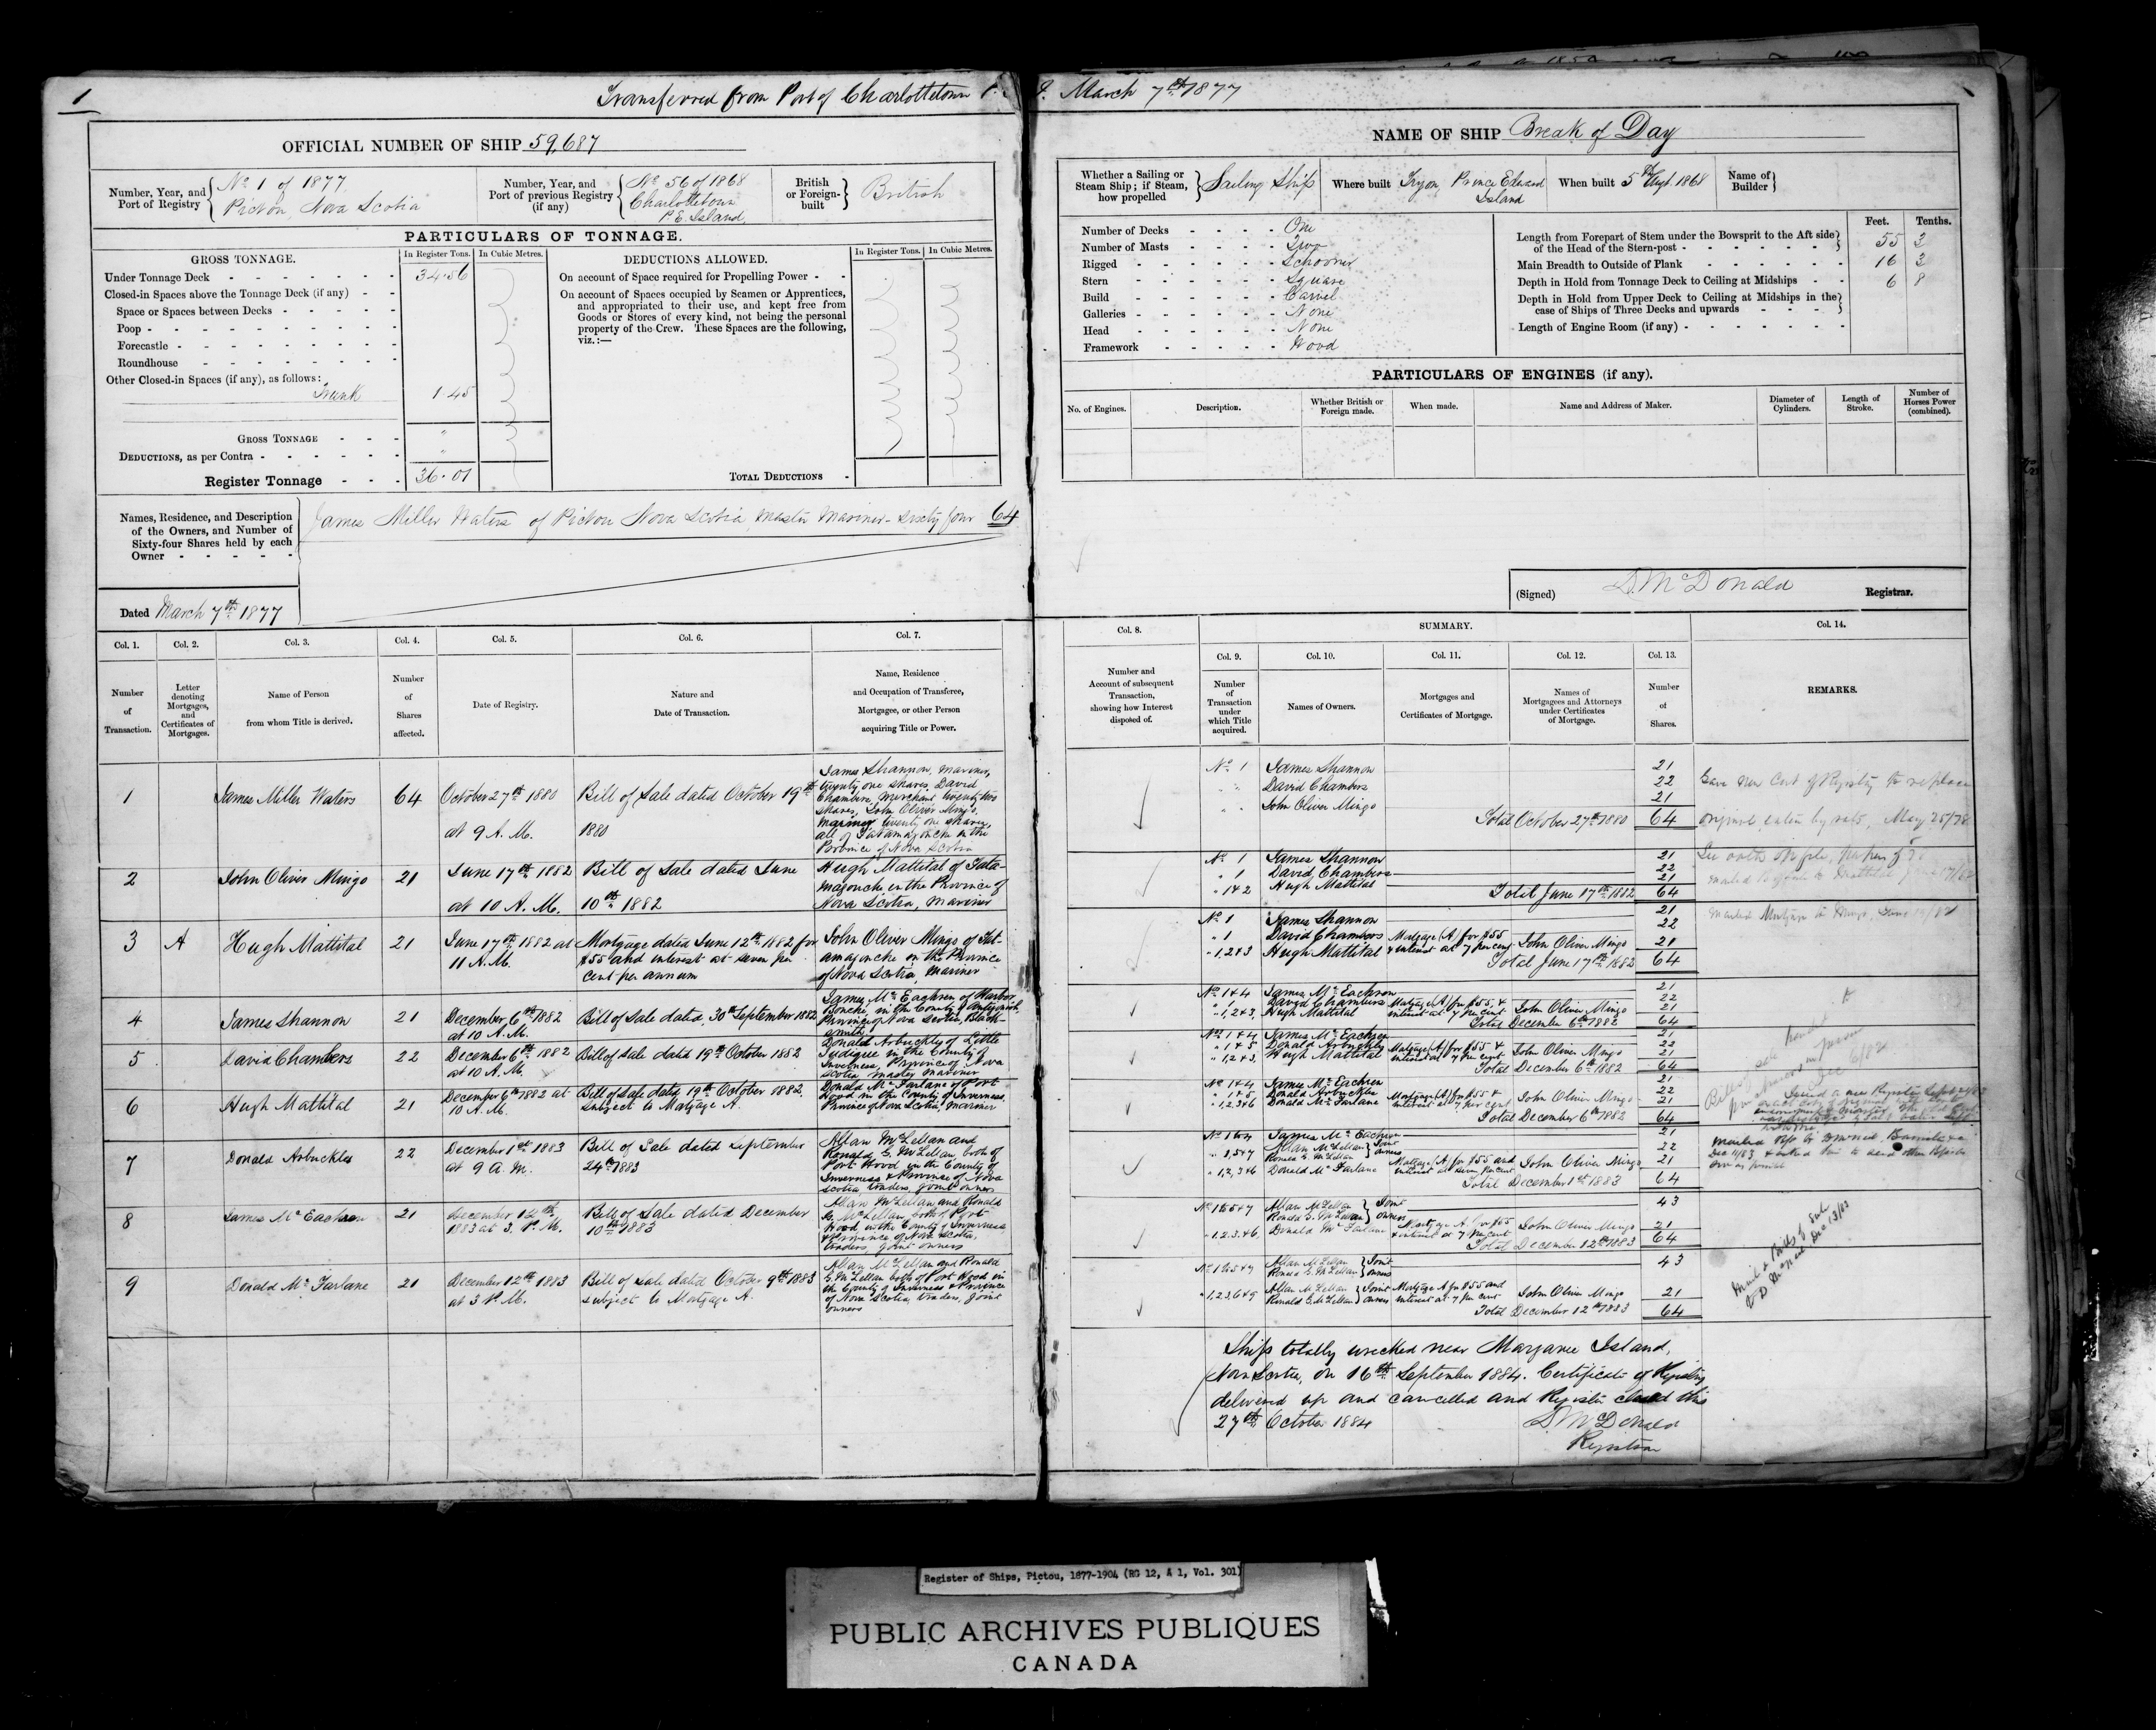 1
Transferred from Port of Charlottetown P. I. March 7th 1877
OFFICIAL NUMBER OF SHIP 59,687
Number, Year, and Port of Registry
No 1 of 1877
Pictou, Nova Scotia
Number, Year, and Port of previous Registry (if any)
No 56 of 1868
Charlottetown
P.E. Island
British or Foreign-built
British
PARTICULARS OF TONNAGE.
GROSS TONNAGE.
In Register Tons.
In Cubic Metres.
DEDUCTIONS ALLOWED.
In Register Tons.
In Cubic Metres.
Under Tonnage Deck 34.56
Closed-in Spaces above the Tonnage Deck (if any)
Space or Spaces between Decks
Poop
Forecastle
Roundhouse
Other Closed-in Spaces (if any), as follows:
Trunk 1.45
GROSS TONNAGE "
DEDUCTIONS, as per Contra "
Register Tonnage 36.01
On account of Space required for Propelling Power
On account of Spaces occupied by Seamen or Apprentices,
and appropriated to their use, and kept free from
Goods or Stores of every kind, not being the personal
property of the Crew. These Spaces are the following,
viz.:—
TOTAL DEDUCTIONS
Names, Residence, and Description
of the Owners, and Number of
Sixty-four Shares held by each
Owner
James Miller Waters of Pictou Nova Scotia, Master Mariner - Sixty four 64
Dated March 7th 1877
NAME OF SHIP Break of Day
Whether a Sailing or
Steam Ship; if Steam,
how propelled
Sailing Ship
Where built Tryon, Prince Edward
Island
When built 5th Augt 1868
Name of Builder
Number of Decks One
Number of Masts Two
Rigged Schooner
Stern Square
Build Carvel
Galleries None
Head None
Framework Wood
Feet. Tenths.
Length from Forepart of Stem under the Bowsprit to the Aft side
of the Head of the Stern-post 55 3
Main Breadth to Outside of Plank 16 3
Depth in Hold from Tonnage Deck to Ceiling at Midships 6 8
Depth in Hold from Upper Deck to Ceiling at Midships in the
case of Ships of Three Decks and upwards
Length of Engine Room (if any)
PARTICULARS OF ENGINES (if any).
No. of Engines.
Description.
Whether British or Foreign made.
When made.
Name and Address of Maker.
Diameter of Cylinders.
Length of Stroke.
Number of Horses Power (combined).
(Signed) D. McDonald Registrar.
Col. 1.
Number of Transaction.
Col. 2.
Letter denoting Mortgages, and Certificates of Mortgages.
Col. 3.
Name of Person from whom Title is derived.
Col. 4.
Number of Shares affected.
Col. 5.
Date of Registry.
Col. 6.
Nature and Date of Transaction.
Col. 7.
Name, Residence and Occupation of Transferee, Mortgagee, or other Person acquiring Title or Power.
1
James Miller Waters
64
October 27th 1880
at 9 A.M.
Bill of Sale dated October 19th
1880
James Shannon, Mariner,
twenty one shares, David
Chambers, Merchant, twenty two
shares, John Oliver Mingo,
Mariner twenty one shares,
all of Tatamagouche in the
Province of Nova Scotia
2
John Oliver Mingo
21
June 17th 1882
at 10 A.M.
Bill of Sale dated June
10th 1882
Hugh Mattital of Tata-
magouche in the Province of
Nova Scotia, Mariner
3
A
Hugh Mattital
21
June 17th 1882 at
11 A.M.
Mortgage dated June 12th 1882 for
$55 and interest at seven per
cent per annum
John Oliver Mingo of Tat-
amagouche in the Province
of Nova Scotia, Mariner
4
James Shannon
21
December 6th 1882
at 10 A.M.
Bill of Sale dated, 30th September 1882
James McEachren of Harbor
Bouche, in the County of Antigonish,
Province of Nova Scotia, Black-
smith
5
David Chambers
22
December 6th 1882
at 10 A.M.
Bill of Sale dated 19th October 1882
Donald Arbuckley of Little
Judique in the County of
Inverness, Province of Nova
Scotia, Master Mariner
6
Hugh Mattital
21
December 6th 1882 at
10 A.M.
Bill of Sale dated 19th October 1882,
subject to Mortgage A.
Donald McFarlane of Port
Hood in the County of Inverness,
Province of Nova Scotia, Mariner
7
Donald Arbuckles
22
December 1st 1883
at 9 A.M.
Bill of Sale dated September
24th 1883
Allan McLellan and
Ronald G. McLellan both of
Port Hood in the County of
Inverness & Province of Nova
Scotia traders, joint owners
8
James McEachren
21
December 12th
1883 at 3. P.M.
Bill of Sale dated December
10th 1883
Allan McLellan and Ronald
G. McLellan, both of Port
Hood in the County of Inverness
& Province of Nova Scotia,
traders, joint owners
9
Donald McFarlane
21
December 12th 1883
at 3 P.M.
Bill of Sale dated October 9th 1883
subject to Mortgage A.
Allan McLellan and Ronald
G. McLellan both of Port Hood in
the County of Inverness & Province
of Nova Scotia, traders, joint
owners
Col. 8.
Number and Account of subsequent Transaction, showing how Interest disposed of.
SUMMARY.
Col. 9.
Number of Transaction under which Title acquired.
Col. 10.
Names of Owners.
Col. 11.
Mortgages and Certificates of Mortgage.
Col. 12.
Names of Mortgagees and Attorneys under Certificates of Mortgage.
Col. 13.
Number of Shares.
Col. 14.
REMARKS.
No 1 James Shannon 21
" David Chambers 22
" John Oliver Mingo 21
Total October 27th 1880 64
Gave new Cert of Registry to replace
original, eaten by rats, May 25/78
No 1 James Shannon 21
" 1 David Chambers 22
" 1&2 Hugh Mattital 21
Total June 17th 1882 64
No 1 James Shannon 21
" 1 David Chambers 22
" 1,2&3 Hugh Mattital Mortgage (A) for $55 & interest at 7 per cent John Oliver Mingo 21
Total June 17th 1882 64
No 1&4 James McEachren 21
" 1 David Chambers 22
" 1,2&3, Hugh Mattital Mortgage (A) for $55, & interest at 7 per cent John Oliver Mingo 21
Total December 6th 1882 64
No 1&4 James McEachren 21
" 1&5 Donald Arbuckley 22
" 1,2&3, Hugh Mattital Mortgage (A) for $55 & interest at 7 per cent John Oliver Mingo 21
Total December 6th 1882 64
No 1&4 James McEachren 21
" 1&5 Donald Arbuckles 22
" 1,2,3&6 Donald McFarlane Mortgage (A) for $55 & interest at 7 per cent John Oliver Mingo 21
Total December 6th 1882 64
No 1&4 James McEachren 21
" 1,5&7 Allan McLellan Ronald G. McLellan Joint owners 22
" 1,2,3&6 Donald McFarlane Mortgage (A) for $55 and interest at seven per cent John Oliver Mingo 21
Total December 1st 1883 64
Allan McLellan Ronald G. McLellan Joint owners 43
" 1.2.3.&6, Donald McFarlane Mortgage A. for $55 & interest at 7 per cent John Oliver Mingo 21
Total December 12th 1883 64
Allan McLellan Ronald G. McLellan Joint owners 43
Allan McLellan Ronald G. McLellan Joint owners Mortgage A for $55 and interest at 7 per cent John Oliver Mingo 21
Total December 12th 1883 64
Ship totally wrecked near Margaree Island,
Nova Scotia, on 16th September 1884. Certificate of Registry
delivered up and cancelled and Register closed this
27th October 1884
D. McDonald
Registrar
Register of Ships, Pictou, 1877-1904 (RG 12, A 1, Vol. 301)
PUBLIC ARCHIVES PUBLIQUES
CANADA